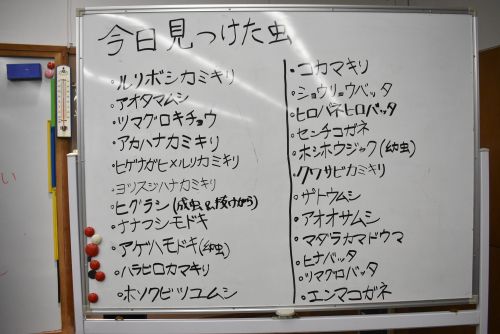 今日見つけた虫
・ルリボシカミキリ
・アオタマムシ
・ツマグロキチョウ
・アカハナカミキリ
・ヒゲナガヒメルリカミキリ
・ヨツスジハナカミキリ
・ヒグラシ(成虫&抜けがら)
・ナナフシモドキ
・アゲハモドキ(幼虫)
・ハラビロカマキリ
・ホソクビツユムシ
・コカマキリ
・ショウリョウバッタ
・ヒロバネヒロバッタ
・センチコガネ
・ホシホウジャク(幼虫)
・クワサビカミキリ
・ザトウムシ
・アオオサムシ
・マダラカマドウマ
・ヒナバッタ
・ツマグロバッタ
・エンマコガネ
い